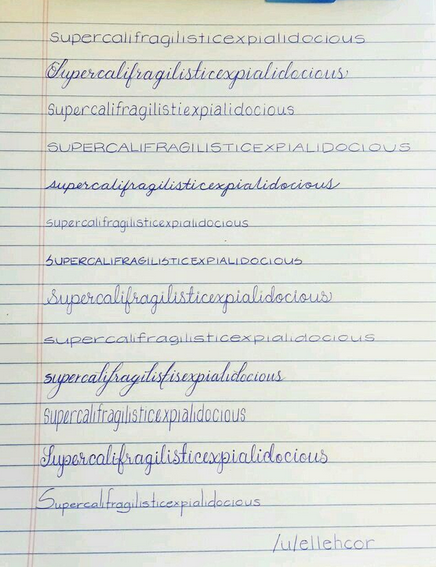 supercalifragilisticexpialidocious
Supercalifragilisticexpialidocious
Supercalifragilistiexpialidocious
SUPERCALIFRAGILISTICEXPIALIDOCIOUS
supercalifragilisticexpialidocious
supercalifragilisticexpialidocious
SUPERCALIFRAGILISTICEXPIALIDOCIOUS
Supercalifragilisticexpialidocious
supercalifragilisticexpialidocious
supercalifragilistisexpialidocious
supercalifragilisticexpialidocious
Supercalifragilisticexpialidocious
Supercalifragilisticexpialidocious
/u/ellehcor